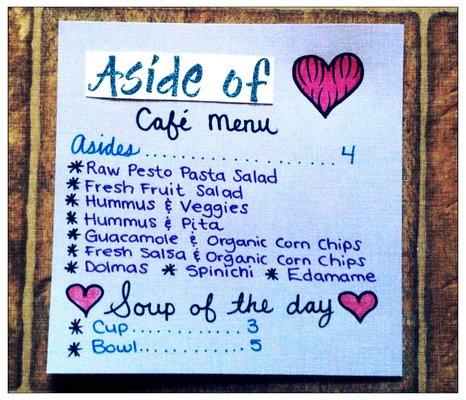 Aside of
Café Menu
Asides.....................4
* Raw Pesto Pasta Salad
* Fresh Fruit Salad
* Hummus & Veggies
* Hummus & Pita
* Guacamole & Organic Corn Chips
* Fresh Salsa & Organic Corn Chips
* Dolmas * Spinichi * Edamame
Soup of the day
* Cup............3
* Bowl...........5